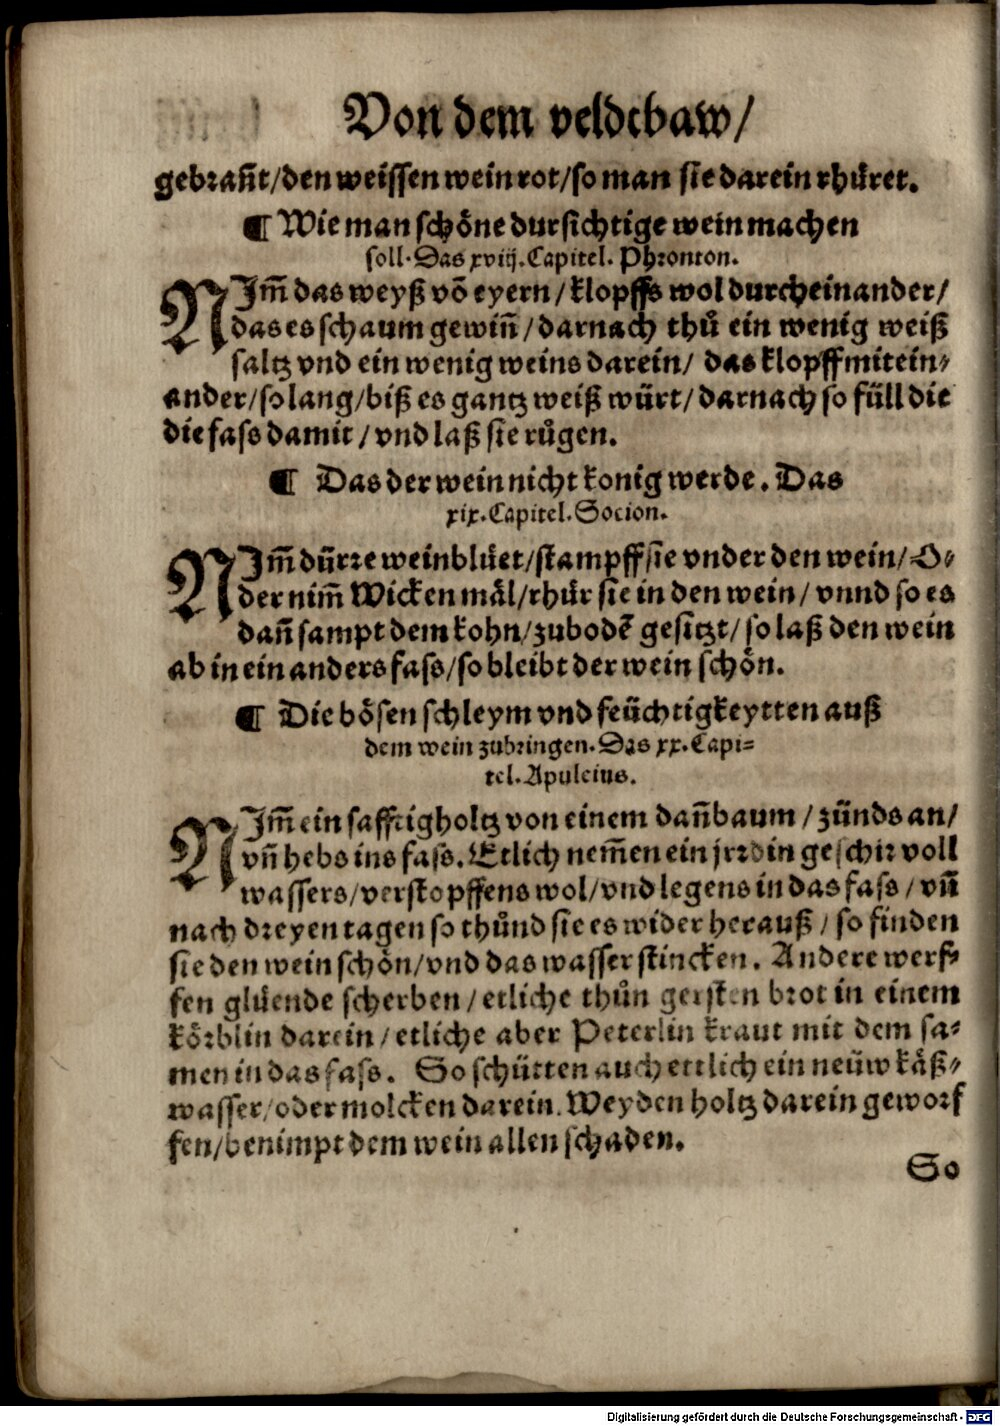 Von dem veldtbaw/
gebrañt/den weissen wein rot/so man sie darein rhüret.
¶ Wie man schöne dursichtige wein machen
soll. Das xviij. Capitel. Phronton.
NJm̃ das weyß võ eyern/klopffs wol durcheinander/
das es schaum gewiñ/darnach thů ein wenig weiß
saltz vnd ein wenig weins darein/ das klopff mitein-
ander/so lang/biß es gantz weiß würt/darnach so füll die
die fass damit/vnd laß sie růgen.
¶ Das der wein nicht konig werde. Das
xix. Capitel. Socion.
NJm̃ dürre weinblüet/stampff sie vnder den wein/O-
der nim̃ Wicken mäl/rhür sie in den wein/ vnnd so es
dañ sampt dem kohn/zu bodẽ gesitzt/so laß den wein
ab in ein anders fass/so bleibt der wein schön.
¶ Die bösen schleym vnd feüchtigkeytten auß
dem wein zubringen. Das xx. Capi-
tel. Apuleius.
NJm̃ ein safftigholtz von einem dañbaum/zünds an/
vñ hebs ins fass. Etlich nem̃en ein jrrdin geschir voll
wassers/verstopffens wol/vnd legens in das fass/vñ
nach dreyen tagen so thůnd sie es wider herauß/so finden
sie den wein schön/vnd das wasser stincken. Andere werf-
fen glüende scherben/etliche thůn gersten brot in einem
körblin darein/etliche aber Peterlin kraut mit dem sa-
men in das fass. So schütten auch ettlich ein neüw käß-
wasser/oder molcken darein. Weyden holtz darein geworf
fen/benimpt dem wein allen schaden.
So
Digitalisierung gefördert durch die Deutsche Forschungsgemeinschaft - DFG